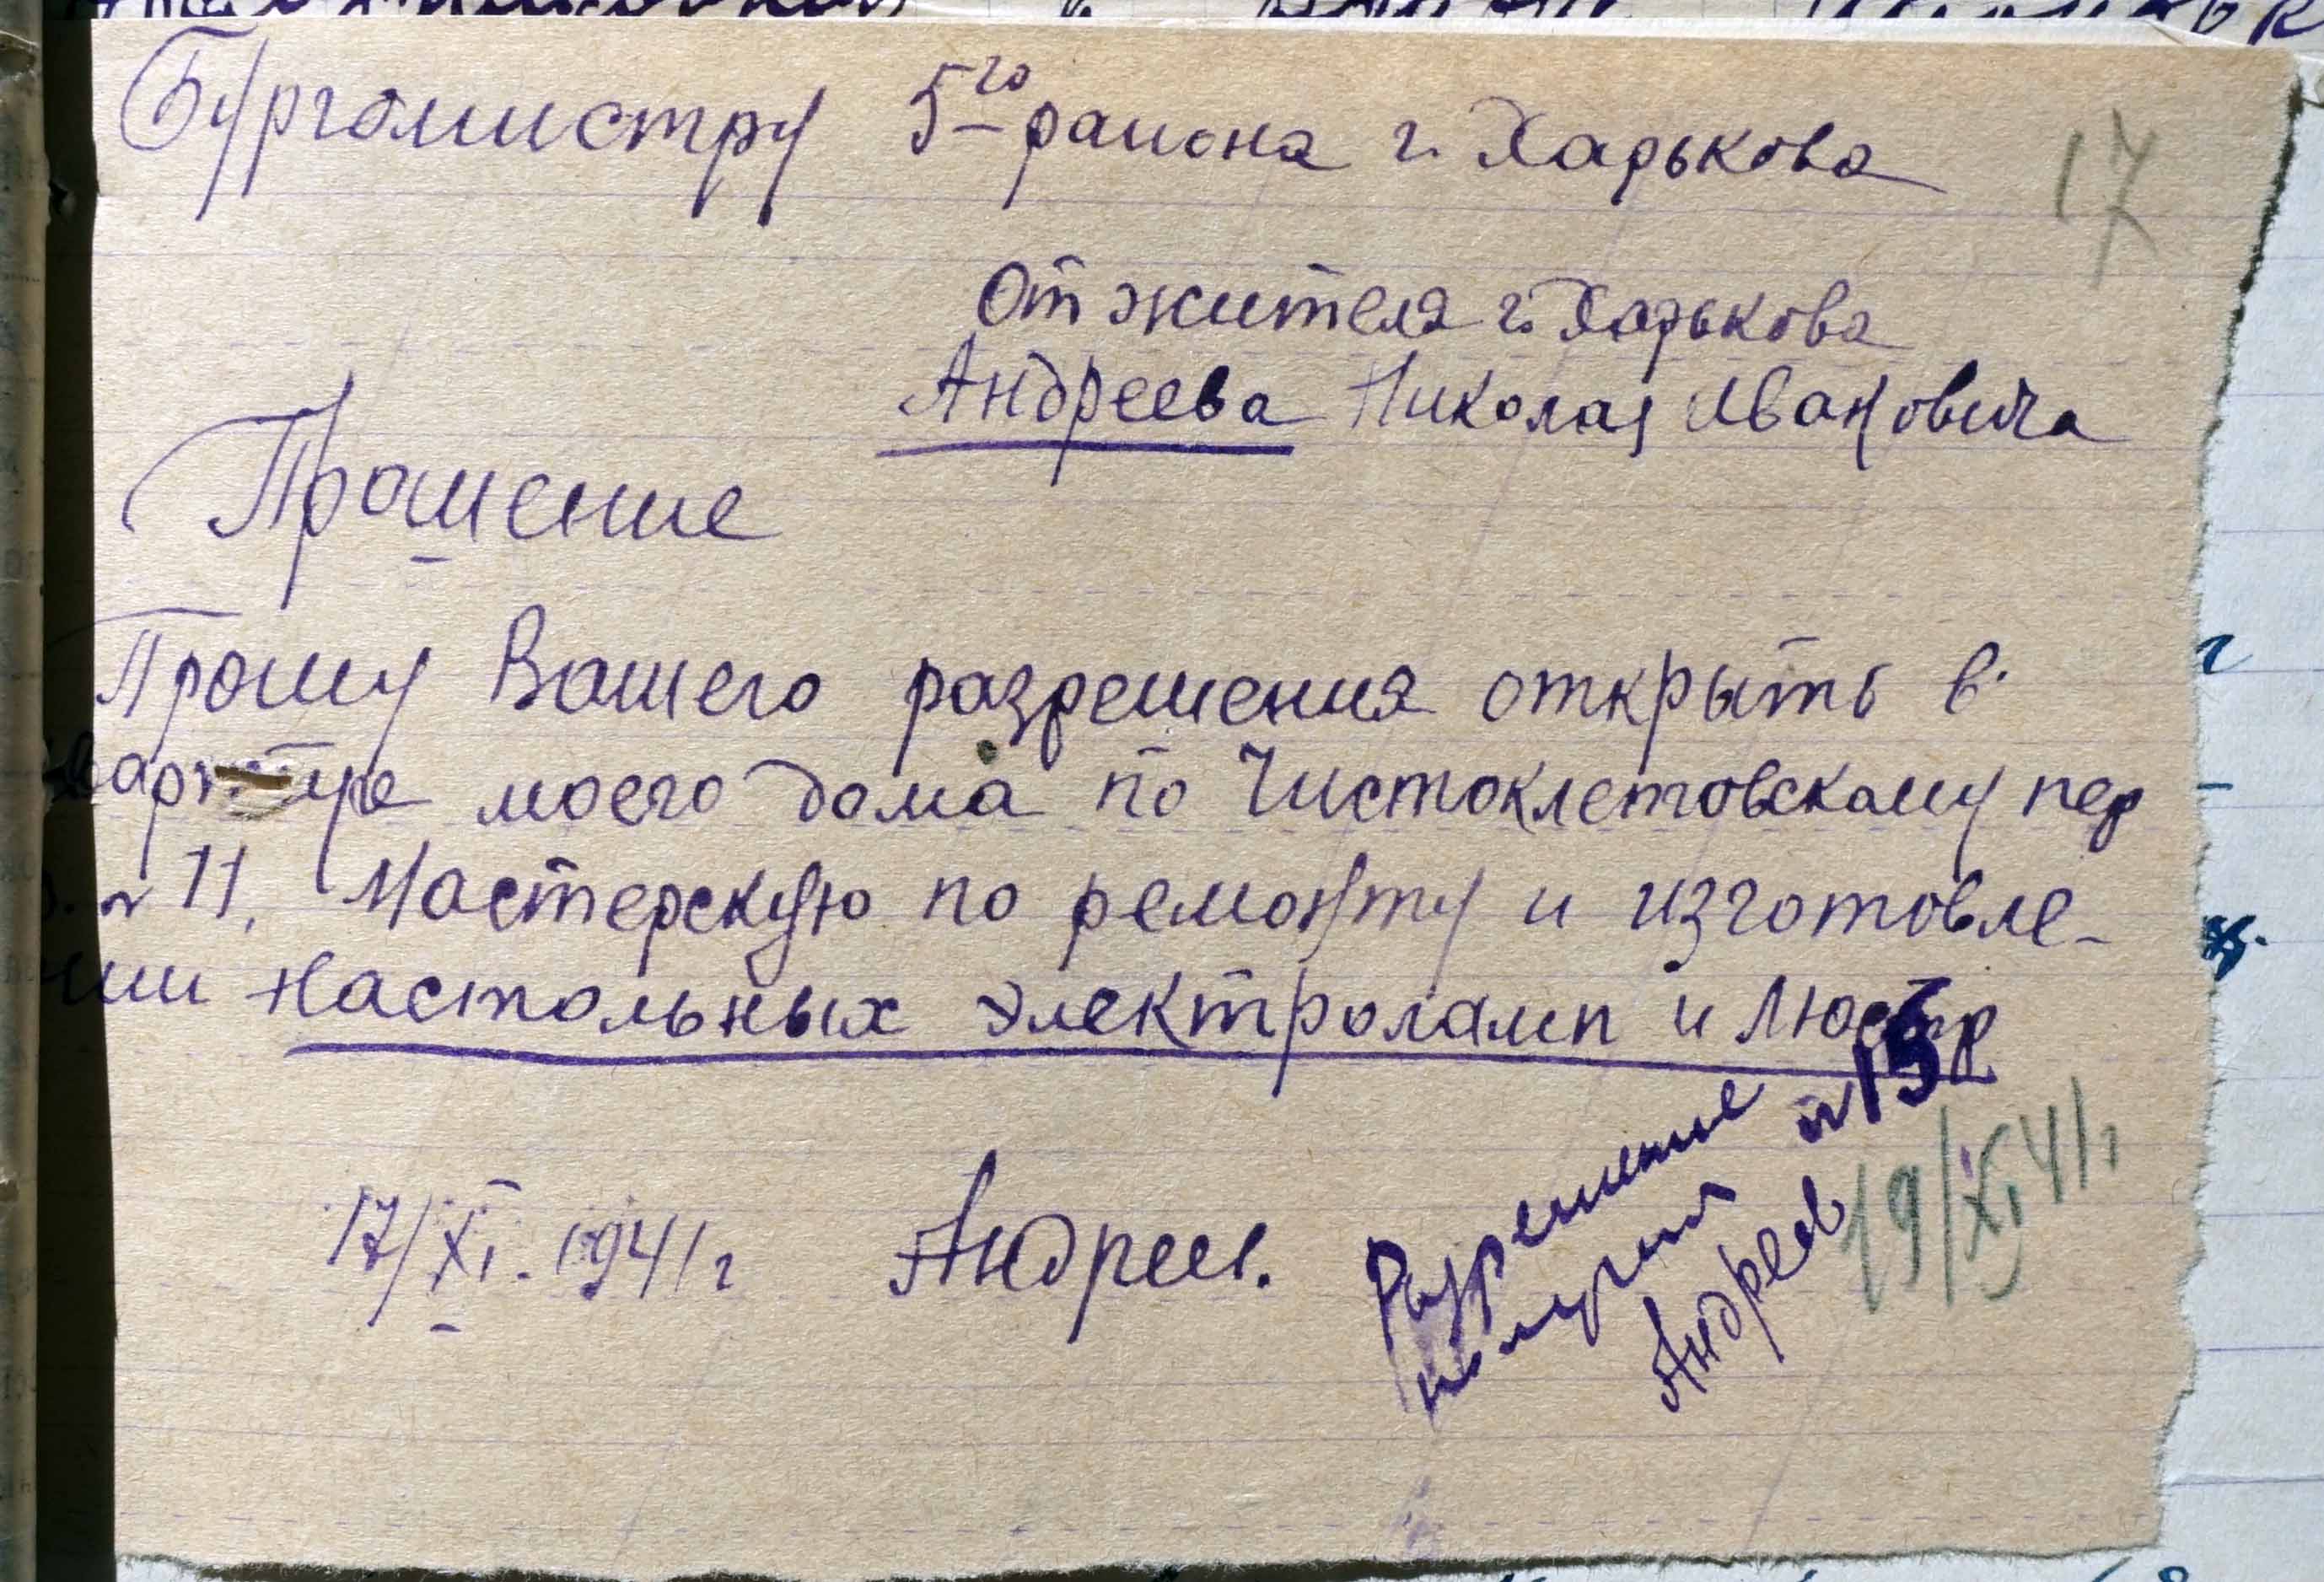 Бургомистру 5го района г. Харькова
17
От жителя г. Харькова
Андреева Николая Ивановича
Прошение
Прошу Вашего разрешения открыть в
квартире моего дома по Чистоклетовскому пер
д. № 11, Мастерскую по ремонту и изготовле-
нии настольных электроламп и люстр
17/XI. 1941 г Андреев.
Разрешение № 15
получил
Андреев
19/XI 41 г